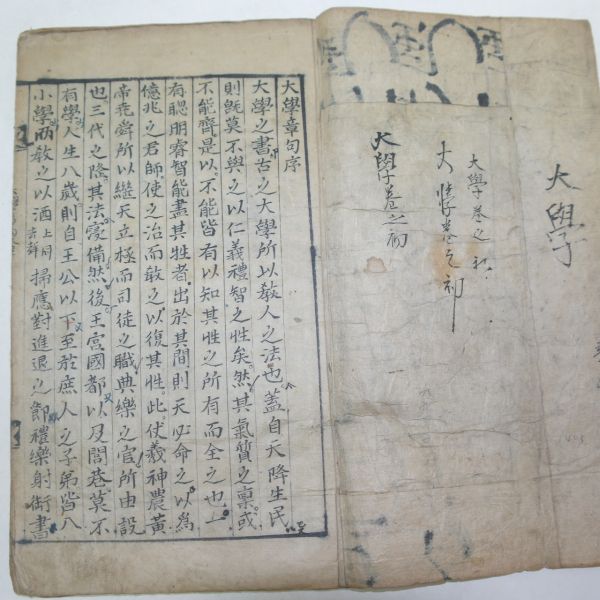 大學
大學卷之初
大學卷之初
大學卷之初
大學章句序
大學之書古之大學所以敎人之法也盖自天降生民
則旣莫不與之以仁義禮智之性矣然其氣質之禀或
不能齊是以不能皆有以知其性之所有而全之也一
有聰明睿智能盡其性者出於其間則天必命之以爲
億兆之君師使之治而敎之以復其性此伏羲神農黃
帝堯舜所以繼天立極而司徒之職典樂之官所由設
也三代之隆其法寖備然後王宮國都以及閭巷莫不
有學人生八歲則自王公以下至於庶人之子弟皆入
小學而敎之以洒上同掃應對進退之節禮樂射御書